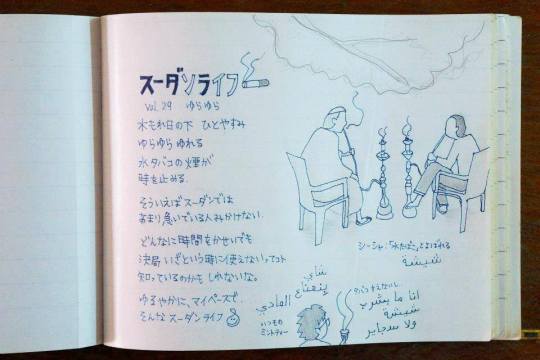 スーダンライフ
vol.29 ゆらゆら
木もれ日の下 ひとやすみ
ゆらゆら ゆれる
水タバコの煙が
時を止める.
そういえばスーダンでは
あまり急いでいる人みかけない.
どんなに時間をかせいでも
決局 いざという時に使えないってコト
知っているのかも しれないな。
ゆるやかに、マイペースで.
そんな スーダンライフ
シーシャ:「水たばこ」とよばれる
شيشة
شاي
بنعناع
العادي
いつもの
ミントティー
انا ما بشرب
شيشة
ولا سجاير